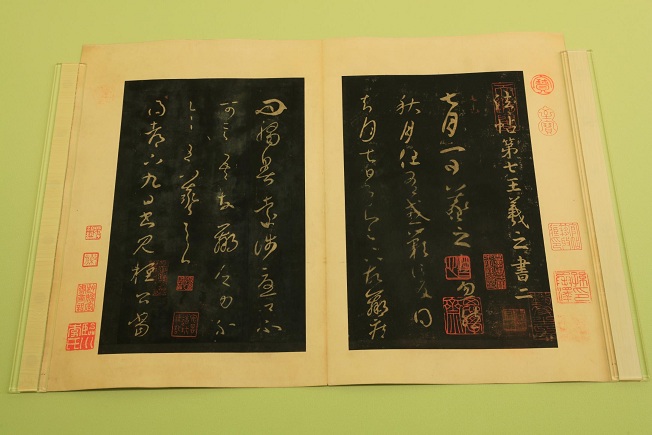 法帖第七 王羲之書二
七月一日羲之白忽然
秋月但有感歎信反得
去月七日書知足下故羸疾
問觸暑遠涉憂卿不
可言吾故羸乏力不
具王羲之
得都下九日書見桓公當